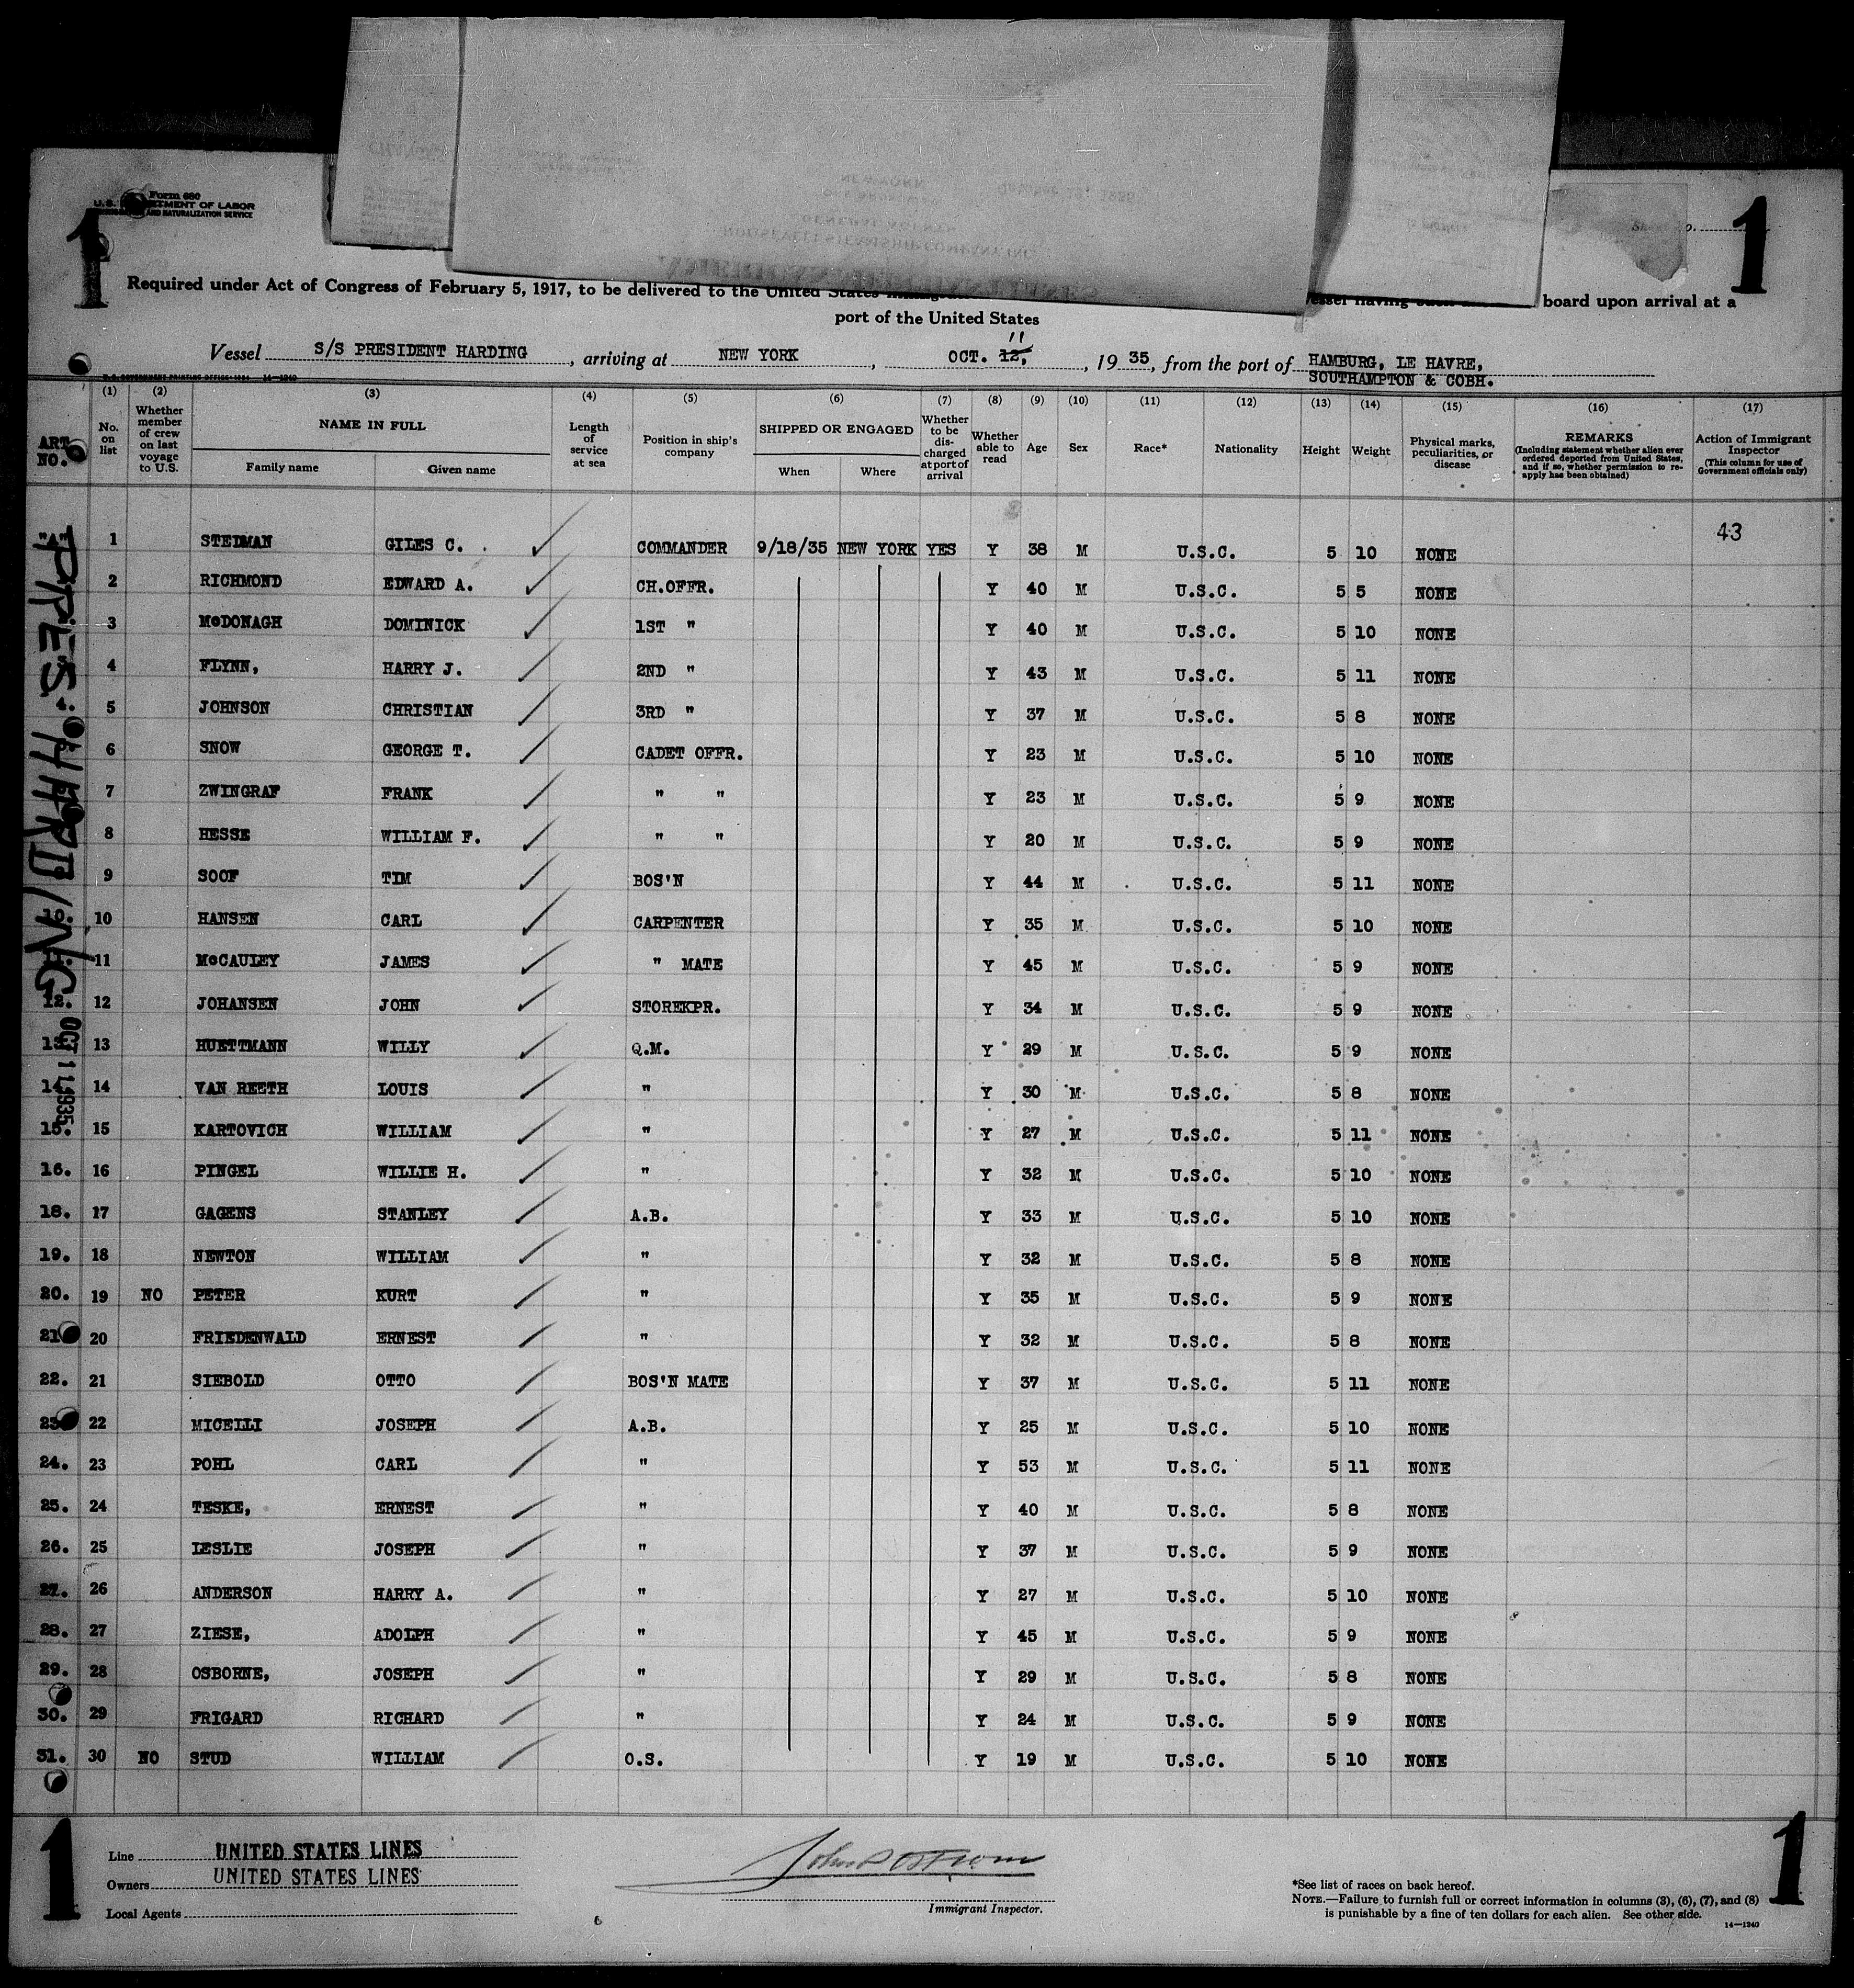 Form 680
U.S. DEPARTMENT OF LABOR
AND NATURALIZATION SERVICE
1
1
Required under Act of Congress of February 5, 1917, to be delivered to the United States board upon arrival at a
port of the United States
Vessel S/S PRESIDENT HARDING, arriving at NEW YORK, OCT. 12, 11, 1935, from the port of HAMBURG, LE HAVRE,
SOUTHAMPTON & COBH.
U.S. GOVERNMENT PRINTING OFFICE: 1934 14—1240
ART. NO. (1) No. on list (2) Whether member of crew on last voyage to U.S. (3) NAME IN FULL Family name Given name (4) Length of service at sea (5) Position in ship's company (6) SHIPPED OR ENGAGED When Where (7) Whether to be discharged at port of arrival (8) Whether able to read (9) Age (10) Sex (11) Race* (12) Nationality (13) Height (14) Weight (15) Physical marks, peculiarities, or disease (16) REMARKS (Including statement whether alien ever ordered deported from United States, and if so, whether permission to reapply has been obtained) (17) Action of Immigrant Inspector (This column for use of Government officials only)
43
"A" 1 STEDMAN GILES C. COMMANDER 9/18/35 NEW YORK YES Y 38 M U.S.C. 5 10 NONE
2 RICHMOND EDWARD A. CH.OFFR. Y 40 M U.S.C. 5 5 NONE
3 McDONAGH DOMINICK 1ST " Y 40 M U.S.C. 5 10 NONE
4 FLYNN, HARRY J. 2ND " Y 43 M U.S.C. 5 11 NONE
4. 5 JOHNSON CHRISTIAN 3RD " Y 37 M U.S.C. 5 8 NONE
6 SNOW GEORGE T. CADET OFFR. Y 23 M U.S.C. 5 10 NONE
7 ZWINGRAF FRANK " " Y 23 M U.S.C. 5 9 NONE
8 HESSE WILLIAM F. " " Y 20 M U.S.C. 5 9 NONE
9 SOOF TIM BOS'N Y 44 M U.S.C. 5 11 NONE
10. 10 HANSEN CARL CARPENTER Y 35 M U.S.C. 5 10 NONE
11 McCAULEY JAMES " MATE Y 45 M U.S.C. 5 9 NONE
12. 12 JOHANSEN JOHN STOREKPR. Y 34 M U.S.C. 5 9 NONE
13 HUETTMANN WILLY Q.M. Y 29 M U.S.C. 5 9 NONE
14 14 VAN REETH LOUIS " Y 30 M U.S.C. 5 8 NONE
15. 15 KARTOVICH WILLIAM " Y 27 M U.S.C. 5 11 NONE
16. 16 PINGEL WILLIE H. " Y 32 M U.S.C. 5 10 NONE
18. 17 GAGENS STANLEY A.B. Y 33 M U.S.C. 5 10 NONE
19. 18 NEWTON WILLIAM " Y 32 M U.S.C. 5 8 NONE
20. 19 NO PETER KURT " Y 35 M U.S.C. 5 9 NONE
21 20 FRIEDENWALD ERNEST " Y 32 M U.S.C. 5 8 NONE
22. 21 SIEBOLD OTTO BOS'N MATE Y 37 M U.S.C. 5 11 NONE
23 22 MICELLI JOSEPH A.B. Y 25 M U.S.C. 5 10 NONE
24. 23 POHL CARL " Y 53 M U.S.C. 5 11 NONE
25. 24 TESKE, ERNEST " Y 40 M U.S.C. 5 8 NONE
26. 25 LESLIE JOSEPH " Y 37 M U.S.C. 5 9 NONE
27. 26 ANDERSON HARRY A. " Y 27 M U.S.C. 5 10 NONE
28. 27 ZIESE, ADOLPH " Y 45 M U.S.C. 5 9 NONE
29. 28 OSBORNE, JOSEPH " Y 29 M U.S.C. 5 8 NONE
30. 29 FRIGARD RICHARD " Y 24 M U.S.C. 5 9 NONE
31. 30 NO STUD WILLIAM O.S. Y 19 M U.S.C. 5 10 NONE
PRES. HARDING
OCT 11 1935
1
1
Line UNITED STATES LINES
Owners UNITED STATES LINES
Local Agents
Immigrant Inspector.
*See list of races on back hereof.
NOTE.—Failure to furnish full or correct information in columns (3), (6), (7), and (8)
is punishable by a fine of ten dollars for each alien. See other side.
14—1240